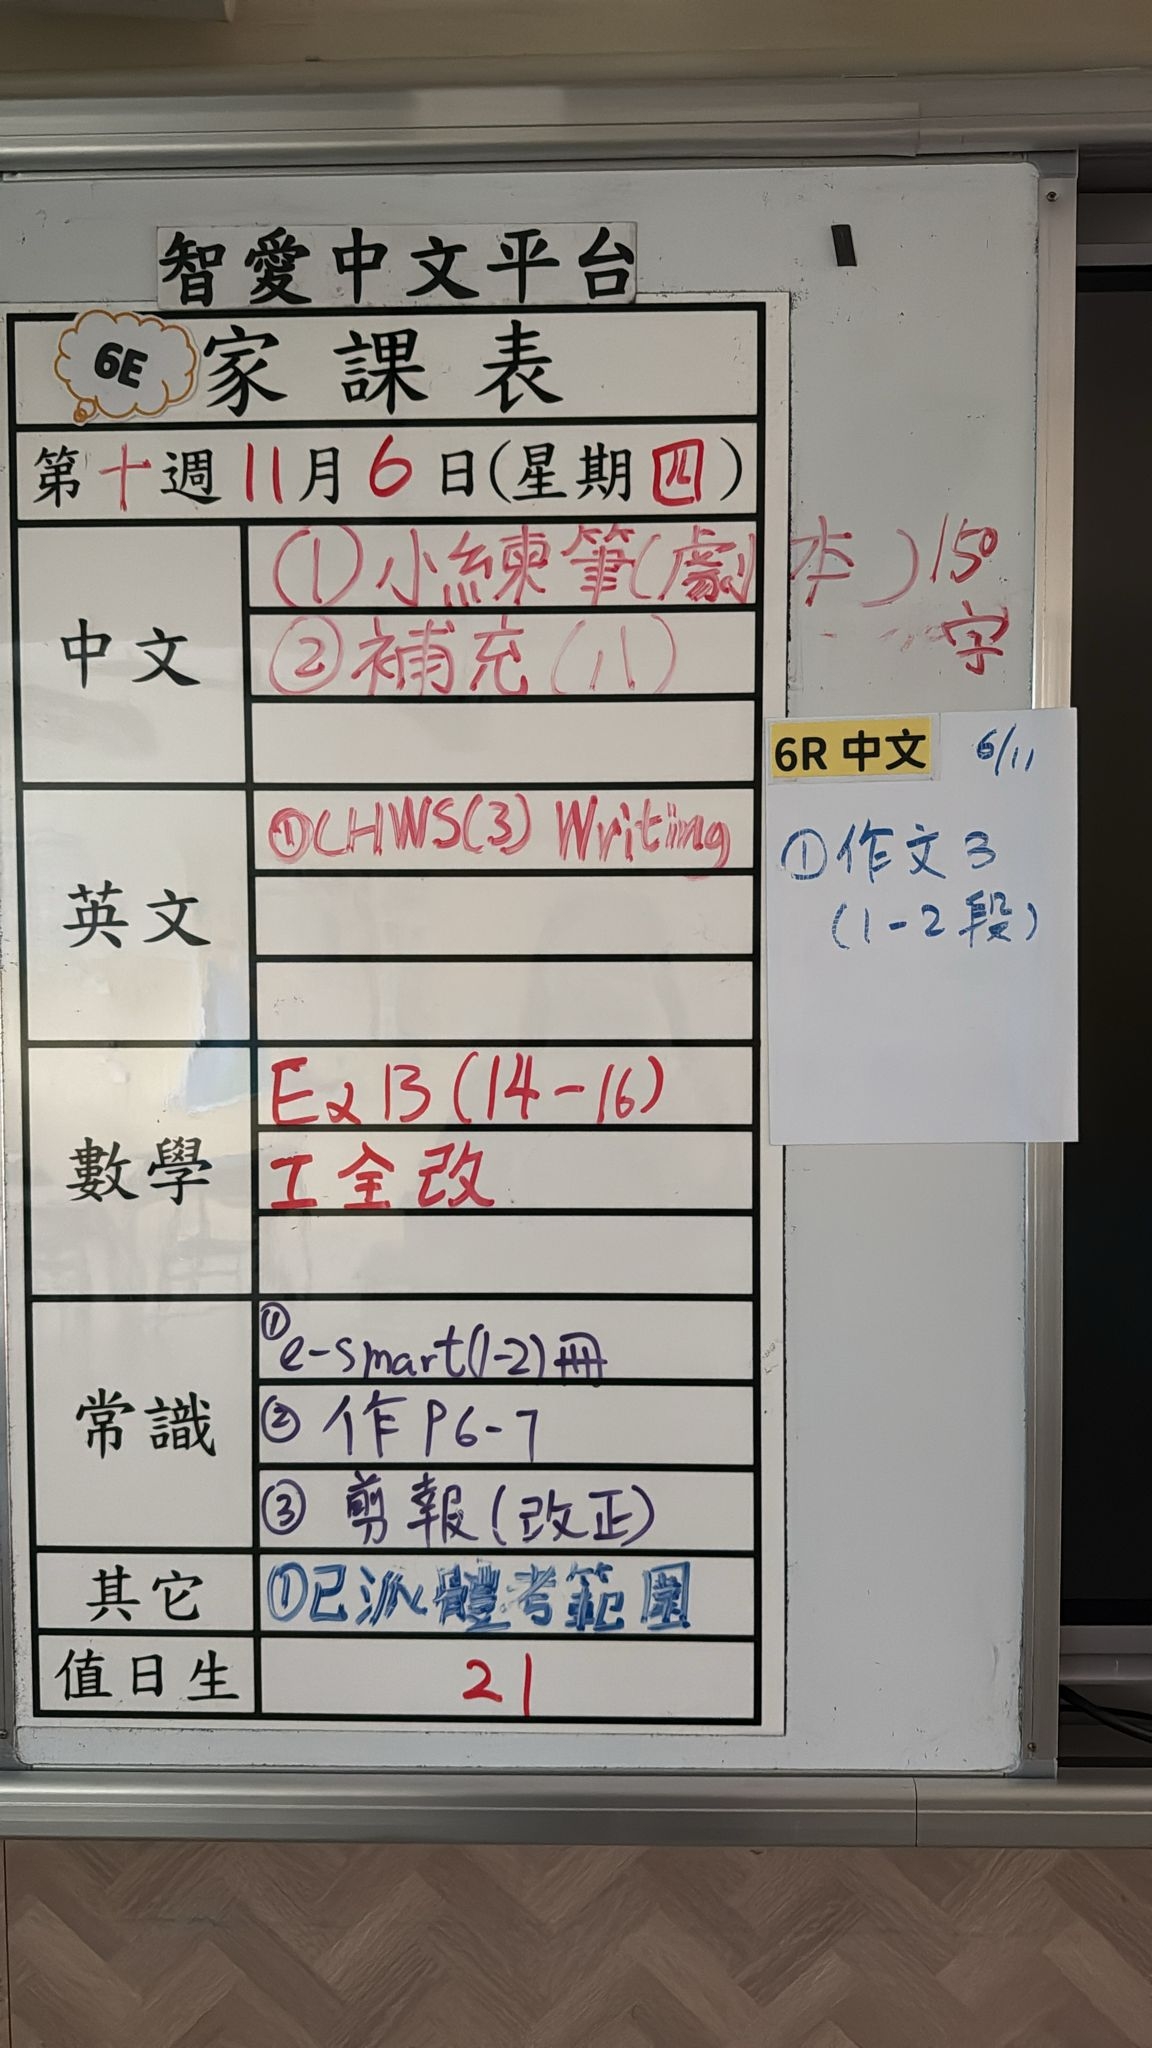 智愛中文平台
6E 家課表
第十週11月6日(星期四)
中文
(1)小練筆(劇本)150字
②補充(八)
英文
①CHWS(3) Writing
數學
Ex 13 (14-16)
工全改
常識
①e-smart(1-2)冊
②作P6-7
③剪報(改正)
其它
①已派體考範圍
值日生
21
6R 中文 6/11
①作文3
(1-2段)